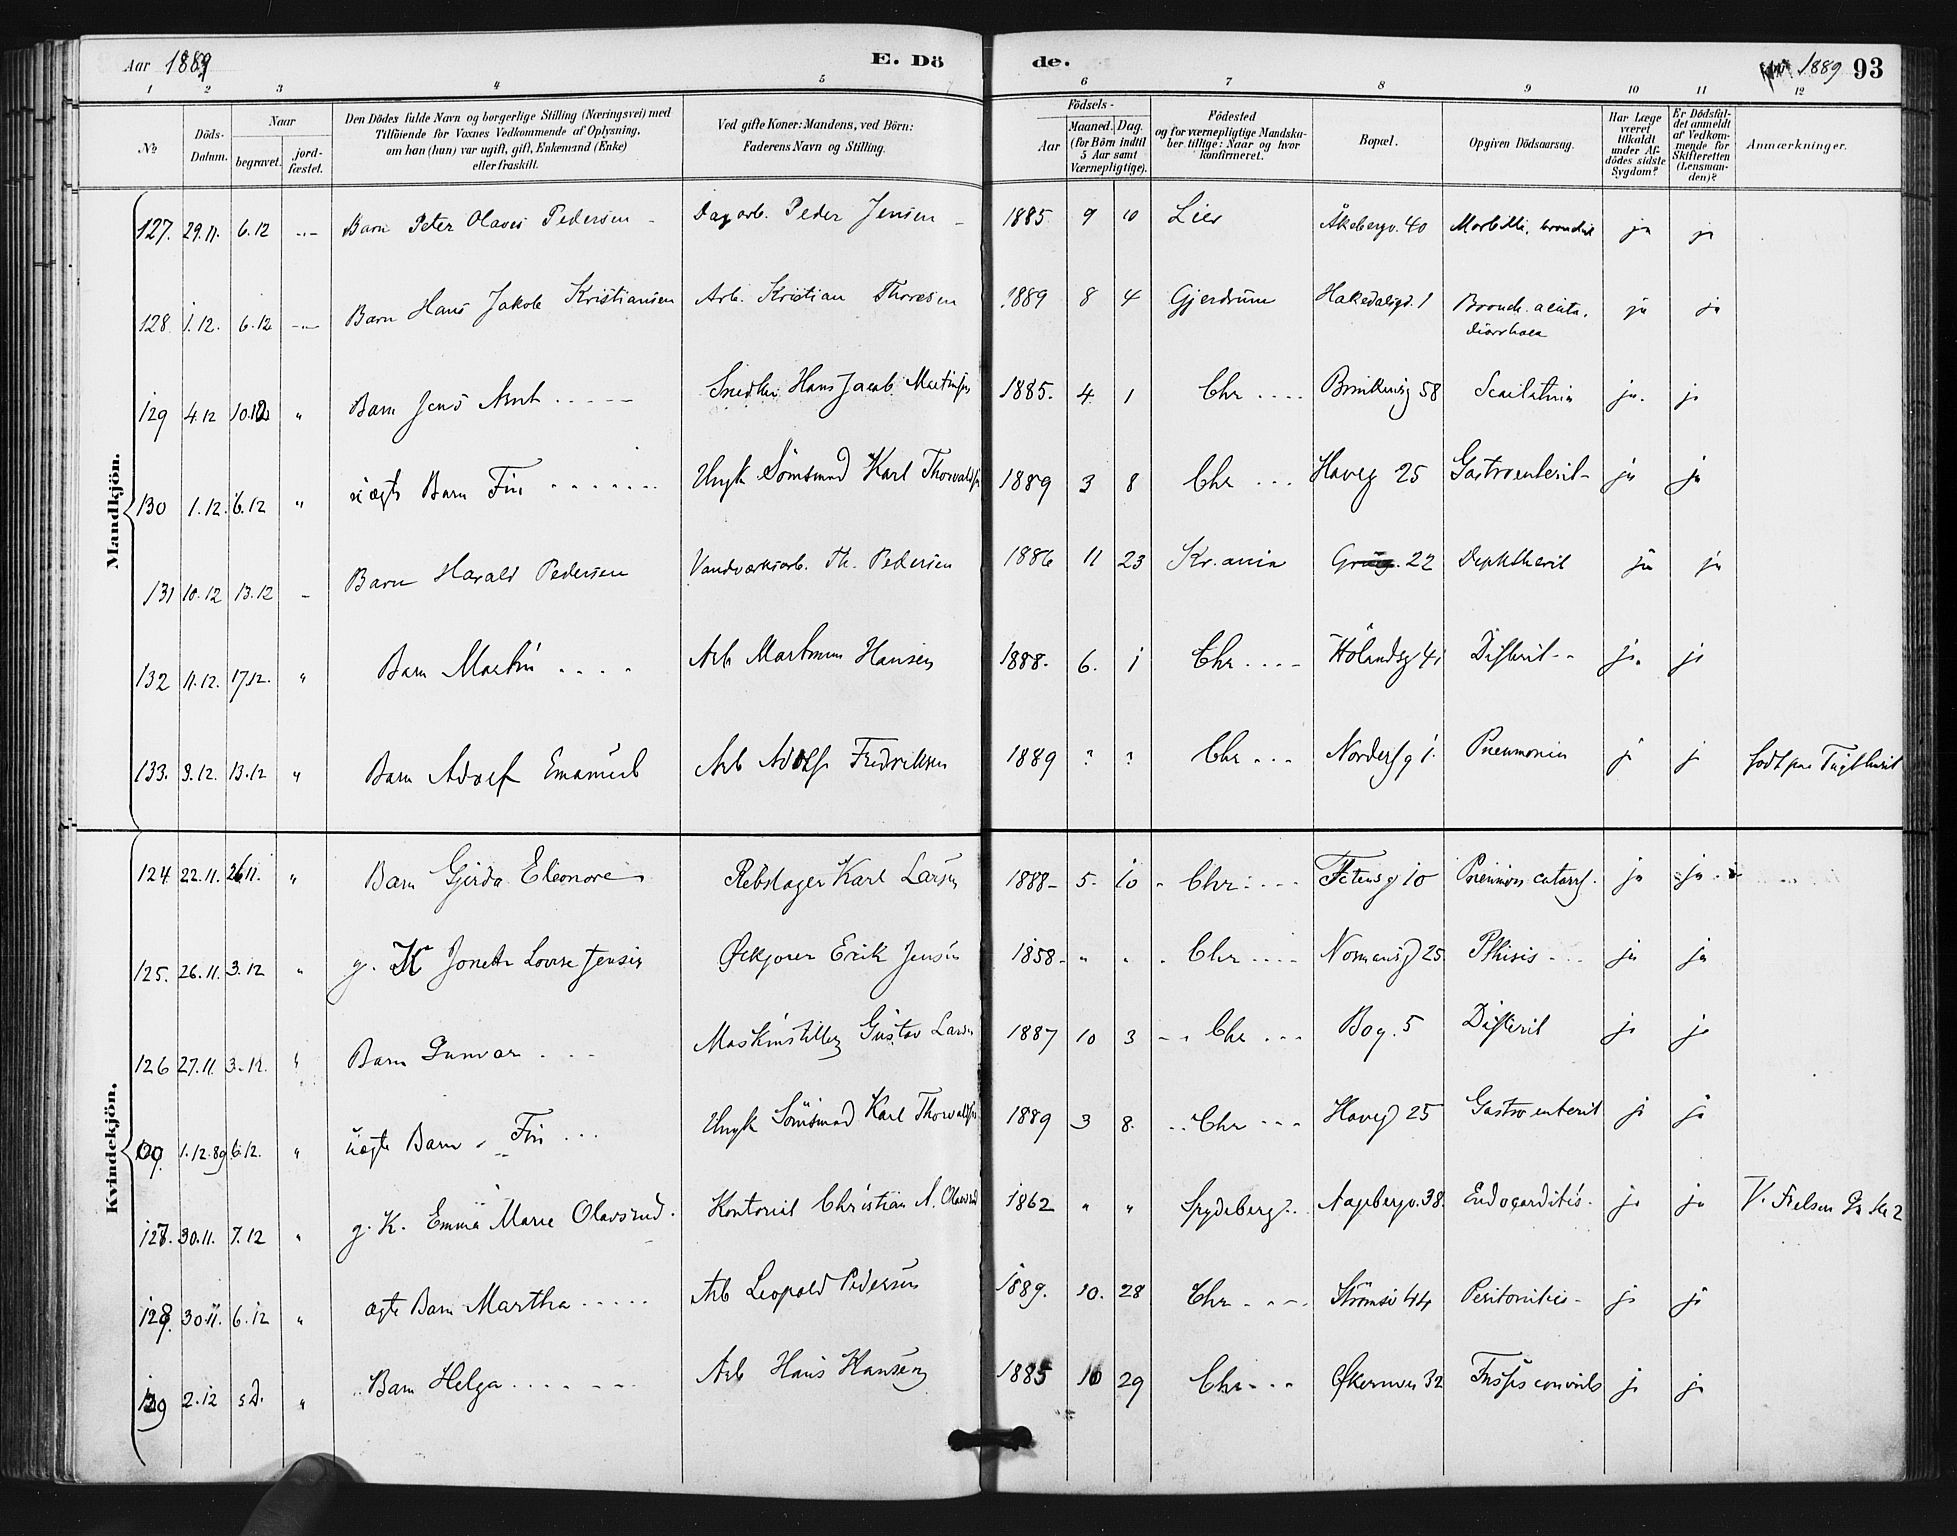 Aar 1889 E. Döde. 1889 93
1 2 3 4 5 6 7 8 9 10 11 12
№ Döds-Datum. Naar begravet. jord-fæstet. Den Dödes fulde Navn og borgerlige Stilling (Næringsvei) med Tilföiende for Voxnes Vedkommende af Oplysning, om han (hun) var ugift, gift, Enkemand (Enke) eller fraskilt. Ved gifte Koner: Mandens, ved Börn: Faderens Navn og Stilling. Födsels- Aar Maaned. Dag. (for Börn indtil 5 Aar samt Værnepligtige). Födested og for værnepligtige Mandska-ber tillige: Naar og hvor konfirmeret. Bopæl. Opgiven Dödsaarsag. Har Læge været tilkaldt under Af-dödes sidste Sygdom? Er Dödsfal-det anmeldt af Vedkom-mende for Skifteretten (Lensman-den)? Anmærkninger.
Mandkjön.
127. 29.11. 6.12 -"- Barn Peter Olaves Pedersen - Dagarb. Peder Jensen - 1885 9 10 Lier Åkebergv. 40 Morbilli, ja ja
128. 1.12. 6.12 -"- Barn Hans Jakob Kristiansen Arb. Kristian Thoresen 1889 8 4 Gjerdrum Hakedalsgd. 1 Bronch. acuta, ja ja
diarrhoea
129 4.12 10.12 " Barn Jens Arnt - - - - - Snedker Hans Jacob 1885. 4 1 Chr - - - - 58 Scarlatina ja. ja
130 1.12. 6.12 " uægte Barn Fin - - - - - - - Ungk Sömsmand Karl 1889 3 8 Chr - - - Haveg 25 Gastroenterit- ja ja
131 10.12 13.12 - Barn Harald Pedersen Vandværksarb. Th. Pedersen 1886 11 23 Kr.ania Grüg. 22 Diphtherit ja ja
132 11.12. 17.12. " Barn Martin - - - - Arb Hansen 1888. 6. 1 Chr - - - - Hölandsg 41 Difterit -- ja. ja
133. 9.12. 13.12 " Barn Adolf Emanuel Arb Adolf Fredriksen 1889 ? ? Chr - - - 1. Pneumonia j j födt paa
Kvindekjön.
124 22.11. 26.11. " Barn Gjerda Eleonore Rebslager Karl Larsen 1888- 5. 10 " Chr - - - - 10 ja ja
125. 26.11. 3.12 " g. K Lovise Jensen Ölkjører Erik Jensen 1858- " " " Chr - - - - Normansg 25 Pthisis - - - ja ja
126 27.11. 3.12. " Barn Gunvar - - - Gustav Larsen 1887 10 3 - " Chr - - - Bog. 5 Difterit ja ja
1.12.89 6.12. " uægte Barn Fin - - - Ungk Sömsmand Karl 1889 3 8. - - Chr - - - Haveg 25 Gastro enterit ja ja
127. 30.11. 7.12 " g. K. Emma Marie Olavsrud. Kontorist Christian A. Olavsrud 1862 " " Spydeberg Aagebergv. 38. Endocarditis. ja ja
128. 30.11. 6.12 " ægte Barn Martha - - - - - Arb Leopold Pedersen 1889. 10. 28 Chr - - - - Strömsv 44 Peritonitis - ja ja
129 2.12 s.D. " Barn Helga - - - - - - Arb Hans Hansen 1885 10 29 Chr - - - Økernveien 32 ja ja